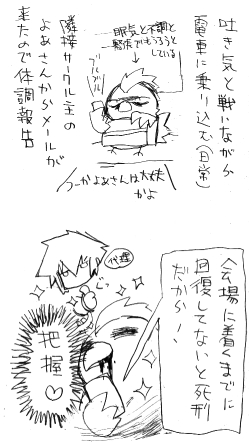 吐き気と戦いながら
電車に乗り込む(日常)
眠気と不調と
緊張でもうろうと
している
ブルブル
隣接サークル主の
よあさんからメールが
来たので体調報告
つーかよあさんは大丈夫
かよ
会場に着くまでに
回復してないと死刑
だから!
把握♡